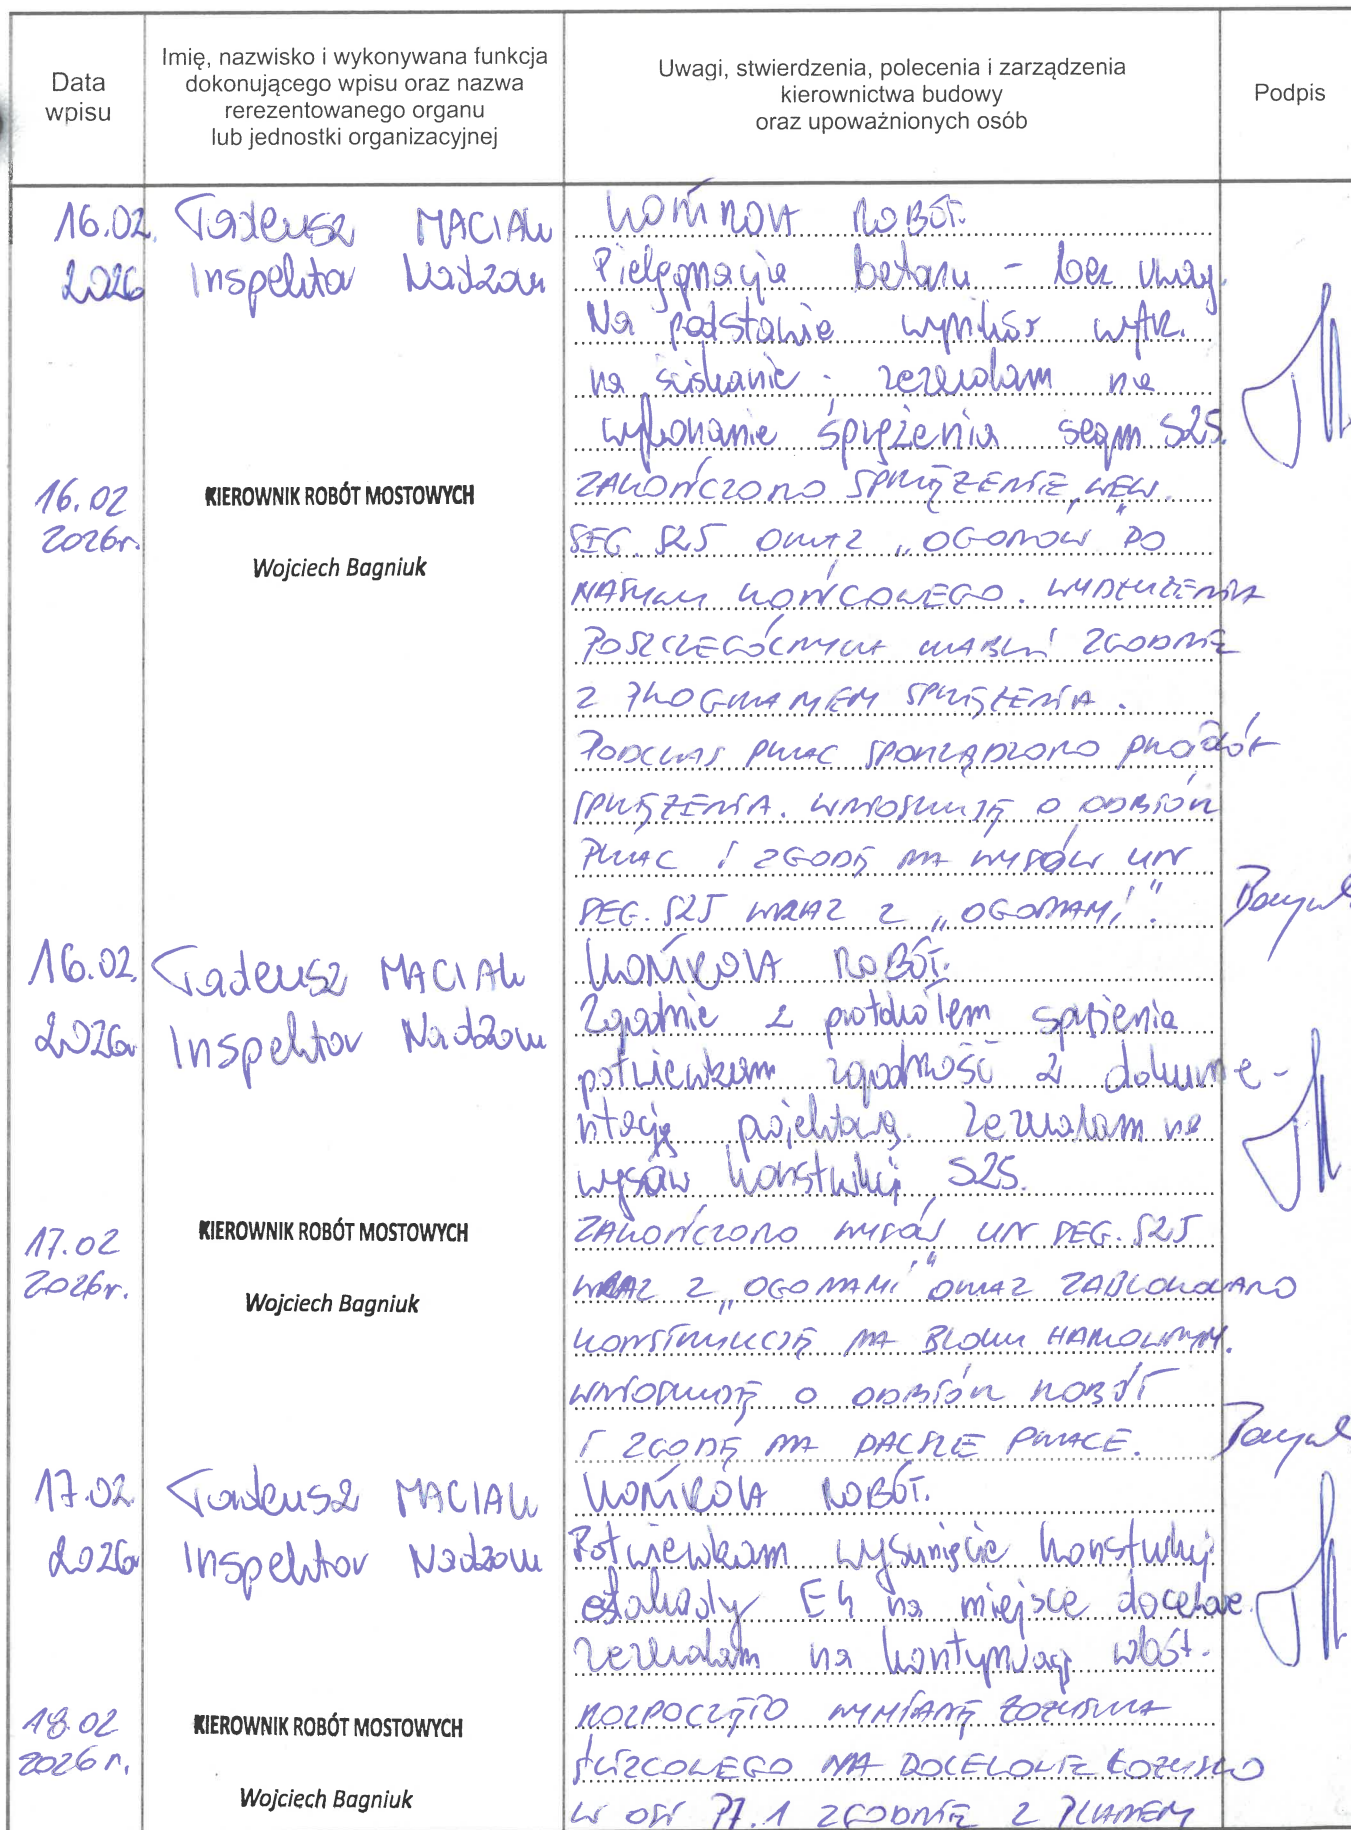 Data
wpisu
Imię, nazwisko i wykonywana funkcja
dokonującego wpisu oraz nazwa
rerezentowanego organu
lub jednostki organizacyjnej
Uwagi, stwierdzenia, polecenia i zarządzenia
kierownictwa budowy
oraz upoważnionych osób
Podpis
16.02.
2026
Tadeusz MACIAK
Inspektor Nadzoru
KONTROLA ROBÓT.
Pielęgnacja betonu - bez uwag.
Na podstawie wyników wytrz.
na ściskanie - zezwalam na
wykonanie sprężenia segm S25.
16.02
2026r.
KIEROWNIK ROBÓT MOSTOWYCH
Wojciech Bagniuk
ZAKOŃCZONO SPRĘŻENIE WEW.
SEG. S25 ORAZ „OGONÓW" DO
NACIĄGU KOŃCOWEGO. WYDŁUŻENIA
POSZCZEGÓLNYCH KABLI ZGODNIE
Z PROGRAMEM SPRĘŻENIA.
PODCZAS PRAC SPORZĄDZONO PROTOKÓŁ
SPRĘŻENIA. WNIOSKUJĘ O ODBIÓR
PRAC I ZGODĘ NA WYSÓW UN
SEG. S25 WRAZ Z „OGONAMI".
16.02.
2026r
Tadeusz MACIAK
Inspektor Nadzoru
KONTROLA ROBÓT.
Zgodnie z protokołem sprężenia
potwierdzam zgodność z dokume-
ntacją projektową. Zezwalam na
wysów konstrukcji S25.
17.02
2026r.
KIEROWNIK ROBÓT MOSTOWYCH
Wojciech Bagniuk
ZAKOŃCZONO WYSÓW UN SEG. S25
WRAZ Z „OGONAMI" ORAZ ZABLOKOWANO
KONSTRUKCJĘ NA BLOKU HAMOWNYM.
WNIOSKUJĘ O ODBIÓR ROBÓT
I ZGODĘ NA DALSZE PRACE.
17.02.
2026r
Tadeusz MACIAK
Inspektor Nadzoru
KONTROLA ROBÓT.
Potwierdzam wysunięcie konstrukcji
estakady E4 na miejsce docelowe.
Zezwalam na kontynuację robót.
18.02
2026r.
KIEROWNIK ROBÓT MOSTOWYCH
Wojciech Bagniuk
ROZPOCZĘTO WYMIANĘ ŁOŻYSKA
ŚLIZGOWEGO NA DOCELOWE ŁOŻYSKO
W OSI P7.1 ZGODNIE Z PLANEM